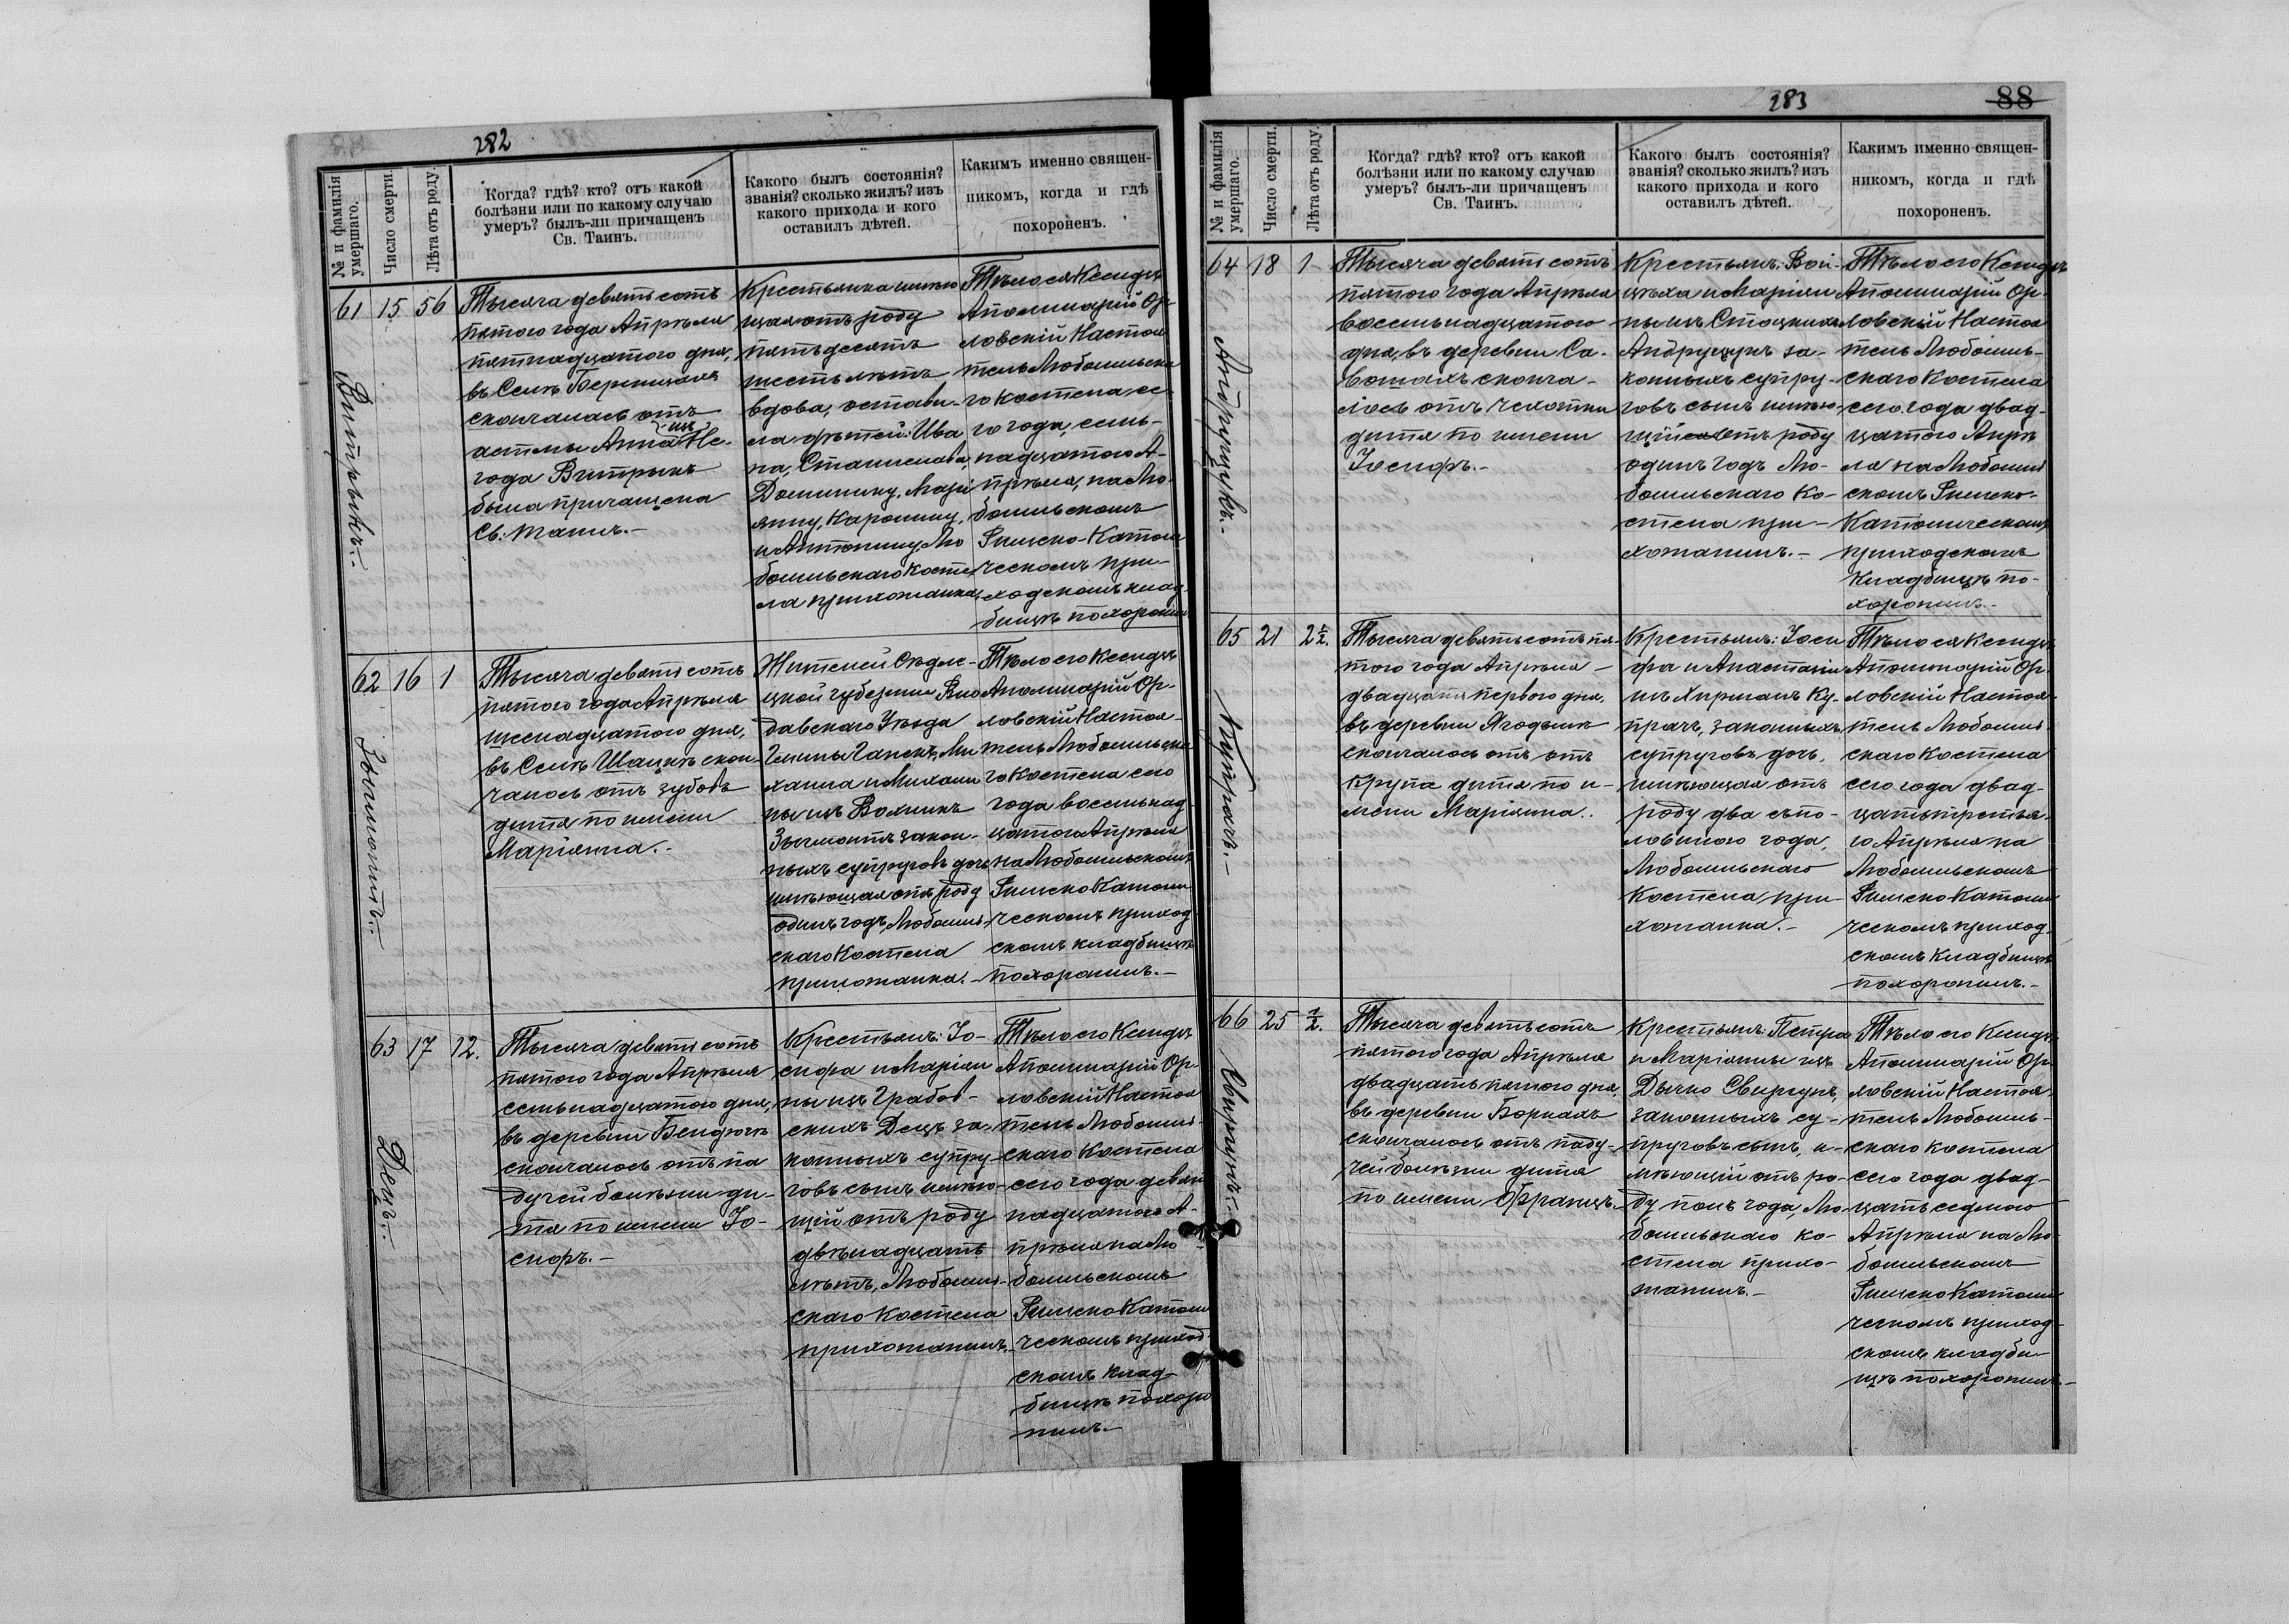 282
№ и фамилія умершаго.
Число смерти.
Лѣта отъ роду.
Когда? гдѣ? кто? отъ какой
болѣзни или по какому случаю
умеръ? былъ-ли причащенъ
Св. Таинъ.
Какого былъ состоянія?
званія? сколько жилъ? изъ
какого прихода и кого
оставилъ дѣтей.
Какимъ именно священ-
никомъ, когда и гдѣ
похороненъ.
61
15
56
Витрыкъ.-
Тысяча девятьсотъ
пятого года Апрѣля
пятнадцатого дня,
въ Селѣ Бережцахъ
скончалась отъ
астмы Анна изъ Не-
года Витрыкъ
была причащена
Св: Таинъ.-
Крестьянка имѣю
щая отъ роду
пятьдесятъ
шесть лѣтъ
вдова, остави-
ла дѣтей: Ива
на, Станислава,
Доминику, Марі
янну, Каролину,
и Антонину, Лю
бомльскаго косте
ла прихожанка,
Тѣло ея Ксендзъ
Аполинарій Ор-
ловскій Настоя
тель Любомльска
го костела се-
го года, семь-
надцатого А-
прѣля, на Лю-
бомльскомъ
Римско-Католи
ческомъ при-
ходскомъ клад-
бищѣ похоронилъ
62
16
1
Зыгмонтъ.-
Тысяча девятьсотъ
пятого года Апрѣля
шеснадцатого дня,
въ Селѣ Шацкѣ скон-
чалось отъ зубовъ
дитя по имени
Маріянна.-
Жителей Сѣдле-
цкой губерніи Вло
давскаго Уѣзда
Гмины Ганскъ, Ми
хаила и Михали
ны изъ Волчикъ
Зыгмонтъ закон-
ныхъ супруговъ дочь
имѣющая отъ роду
одинъ годъ, Любомль-
скаго Костела
прихожанка.-
Тѣло его Ксендзъ
Аполинарій Ор-
ловскій Настоя-
тель Любомльска
го Костела сего
года восемьнад-
цатого Апрѣля
на Любомльскомъ
Римско Католи
ческомъ приход-
скомъ кладбищѣ
похоронилъ.-
63
17
12.
Децъ.-
Тысяча девятьсотъ
пятого года Апрѣля
семьнадцатого дня,
въ деревни Бендюгѣ
скончалось отъ па
дучей болѣзни ди-
тя по имени Іо-
сифъ.-
Крестьянъ: Іо-
сифа и Маріян
ны изъ Грабов-
скихъ Децъ за-
конныхъ супру-
говъ сынъ имѣю-
щій отъ роду
двѣнадцать
лѣтъ, Любомль-
скаго Костела
прихожанинъ.-
Тѣло его Ксендзъ
Аполинарій Ор-
ловскій Настоя
тель Любомль
скаго Костела
сего года девят
надцатого А-
прѣля на Лю
бомльскомъ
Римско Католи
ческомъ приход-
скомъ клад-
бищѣ похоро
нилъ.-
283
88
№ и фамилія умершаго.
Число смерти.
Лѣта отъ роду.
Когда? гдѣ? кто? отъ какой
болѣзни или по какому случаю
умеръ? былъ-ли причащенъ
Св. Таинъ.
Какого былъ состоянія?
званія? сколько жилъ? изъ
какого прихода и кого
оставилъ дѣтей.
Какимъ именно священ-
никомъ, когда и гдѣ
похороненъ.
64
18
1
Андрущукъ.-
Тысяча девятьсотъ
пятого года Апрѣля
восемьнадцатого
дня, въ деревни Са-
вошахъ сконча-
лось отъ чахотки
дитя по имени
Іосифъ.-
Крестьянъ: Вой-
цѣха и Маріян
ны изъ Стоцкихъ
Андрущукъ за-
конныхъ супру-
говъ сынъ имѣю-
щій отъ роду
одинъ годъ Лю-
бомльскаго Ко-
стела при-
хожанинъ.-
Тѣло его Ксендзъ
Аполинарій Ор-
ловскій Настоя
тель Любомль-
скаго Костела
сего года двад-
цатого Апрѣ
ля на Любомль
скомъ Римско-
Католическомъ
приходскомъ
кладбищѣ по-
хоронилъ.-
65
21
2½.
Купрачъ.-
Тысяча девятьсотъ пя-
того года Апрѣля
двадцать первого дня,
въ деревни Ягодынѣ
скончалось отъ отъ
крупа дитя по и-
мени Маріянна..
Крестьянъ: Іоси
фа и Анастасіи
изъ Хирманъ Ку-
прачъ, законныхъ
супруговъ дочь,
имѣющая отъ
роду два съ по-
ловиною года,
Любомльскаго
Костела при-
хожанка.-
Тѣло ея Ксендзъ
Аполинарій Ор-
ловскій Настоя-
тель Любомль
скаго Костела
сего года двад-
цать третья-
го Апрѣля на
Любомльскомъ
Римско Католи
ческомъ приход-
скомъ Кладбищѣ
похоронилъ.-
66
25
½.
Тысяча девятьсотъ
пятого года Апрѣля
двадцать пятого дня,
въ деревни Боркахъ
скончалось отъ паду-
чей болѣзни дитя
по имени Францъ.-
Крестьянъ: Петра
и Маріянны изъ
Дычко Свирщукъ,
законныхъ су-
пруговъ сынъ, и-
мѣющій отъ ро-
ду полъ года, Лю-
бомльскаго ко-
стела прихо-
жанинъ.-
Тѣло его Ксендзъ
Аполинарій Ор-
ловскій Настоя-
тель Любомль-
скаго Костела
сего года двад-
цать седмого
Апрѣля на Лю-
бомльскомъ
Римско Католи
ческомъ приход-
скомъ кладби-
щѣ похоронилъ.-